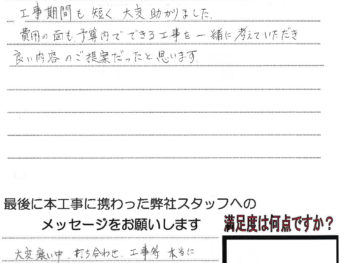 工事期間も短く大変助かりました。
費用の面も予算内でできる工事を一緒に考えていただき
良い内容のご提案だったと思います
最後に本工事に携わった弊社スタッフへの
メッセージをお願いします
満足度は何点ですか?
大変寒い中、打ち合わせ、工事等 本当に